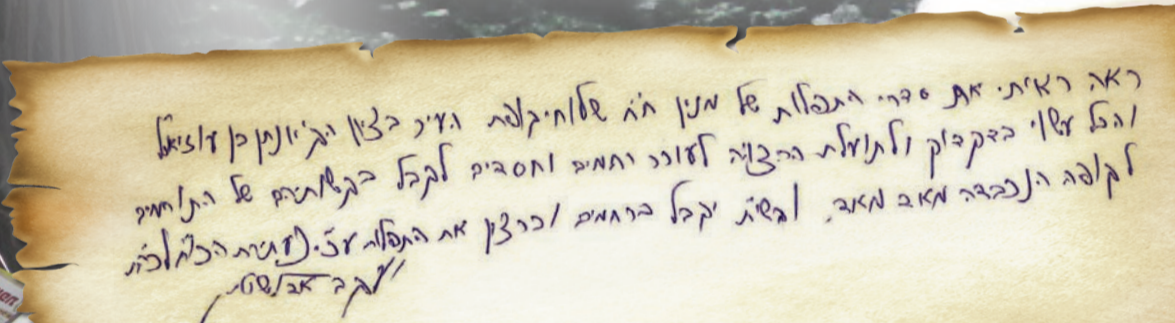 ראה ראיתי את סדרי התפלות של מנין ת"ח שלוחי קופת העיר בציון הק' יונתן בן עוזיאל
והכל עשוי בדקדוק ולתועלת הרצויה לעורר רחמים וחסדים לקבל בקשותיהם של התורמים
לקופה הנכבדה מאד מאד. ובשי"ת יקבל ברחמים וברצון את התפלות
יעקב